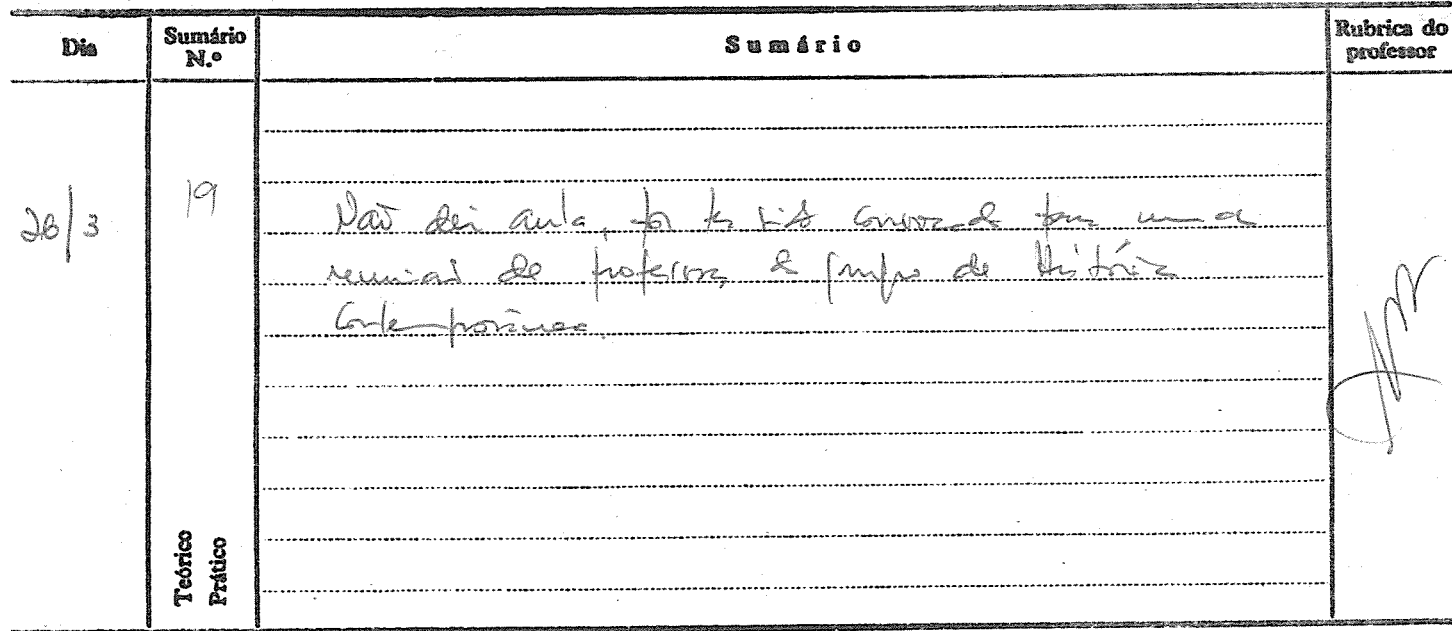 Dia
Sumário N.º
Sumário
Rubrica do professor
26/3
19
Não dei aula, por ter sido convocado para uma
reunião de professores do grupo de História
Contemporânea.
Teórico
Prático